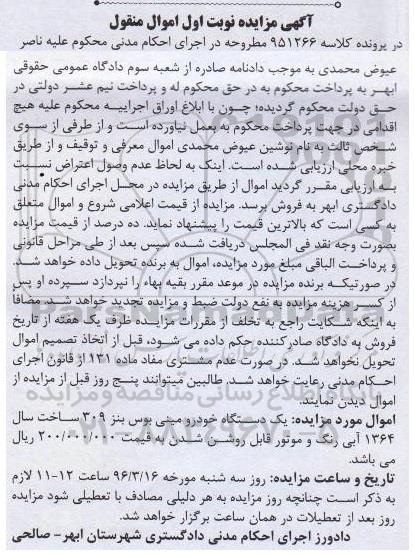 آگهی مزایده نوبت اول اموال منقول
در پرونده کلاسه ۹۵۱۲۶۶ مطروحه در اجرای احکام مدنی محکوم علیه ناصر
عیوض محمدی به موجب دادنامه صادره از شعبه سوم دادگاه عمومی حقوقی
ابهر به پرداخت محکوم به در حق محکوم له و پرداخت نیم عشر دولتی در
حق دولت محکوم گردیده؛ چون با ابلاغ اوراق اجراییه محکوم علیه هیچ
اقدامی در جهت پرداخت محکوم به بعمل نیاورده است و از طرفی از سوی
شخص ثالث به نام نوشین عیوض محمدی اموال معرفی و توقیف و از طریق
خبره محلی ارزیابی شده است. اینک به لحاظ عدم وصول اعتراض نسبت
به ارزیابی مقرر گردید اموال از طریق مزایده در محل اجرای احکام مدنی
دادگستری ابهر به فروش برسد. مزایده از قیمت اعلامی شروع و اموال متعلق
به کسی است که بالاترین قیمت را پیشنهاد نماید. ده درصد از قیمت مزایده
بصورت وجه نقد فی المجلس دریافت شده سپس بعد از طی مراحل قانونی
و پرداخت الباقی مبلغ مورد مزایده، اموال به برنده تحویل داده خواهد شد.
در صورتیکه برنده مزایده در موعد مقرر بقیه بهاء را نپردازد سپرده او پس
از کسر هزینه مزایده به نفع دولت ضبط و مزایده تجدید خواهد شد. مضافا
به اینکه شکایت راجع به تخلف از مقررات مزایده ظرف یک هفته از تاریخ
فروش به دادگاه صادرکننده حکم داده می شود، قبل از اتخاذ تصمیم اموال
تحویل نخواهد شد. در صورت عدم مشتری مفاد ماده ۱۳۱ از قانون اجرای
احکام مدنی رعایت خواهد شد. طالبین میتوانند پنج روز قبل از مزایده از
اموال دیدن نمایند.
اموال مورد مزایده: یک دستگاه خودرو مینی بوس بنز ۳۰۹ ساخت سال
۱۳۶۴ آبی رنگ و موتور قابل روشن شدن به قیمت ۲۰۰/۰۰۰/۰۰۰ ریال
می باشد.
تاریخ و ساعت مزایده: روز سه شنبه مورخه ۹۶/۳/۱۶ ساعت ۱۲-۱۱ لازم
به ذکر است چنانچه روز مزایده به هر دلیلی مصادف با تعطیلی شود مزایده
روز بعد از تعطیلات در همان ساعت برگزار خواهد شد.
دادورز اجرای احکام مدنی دادگستری شهرستان ابهر- صالحی